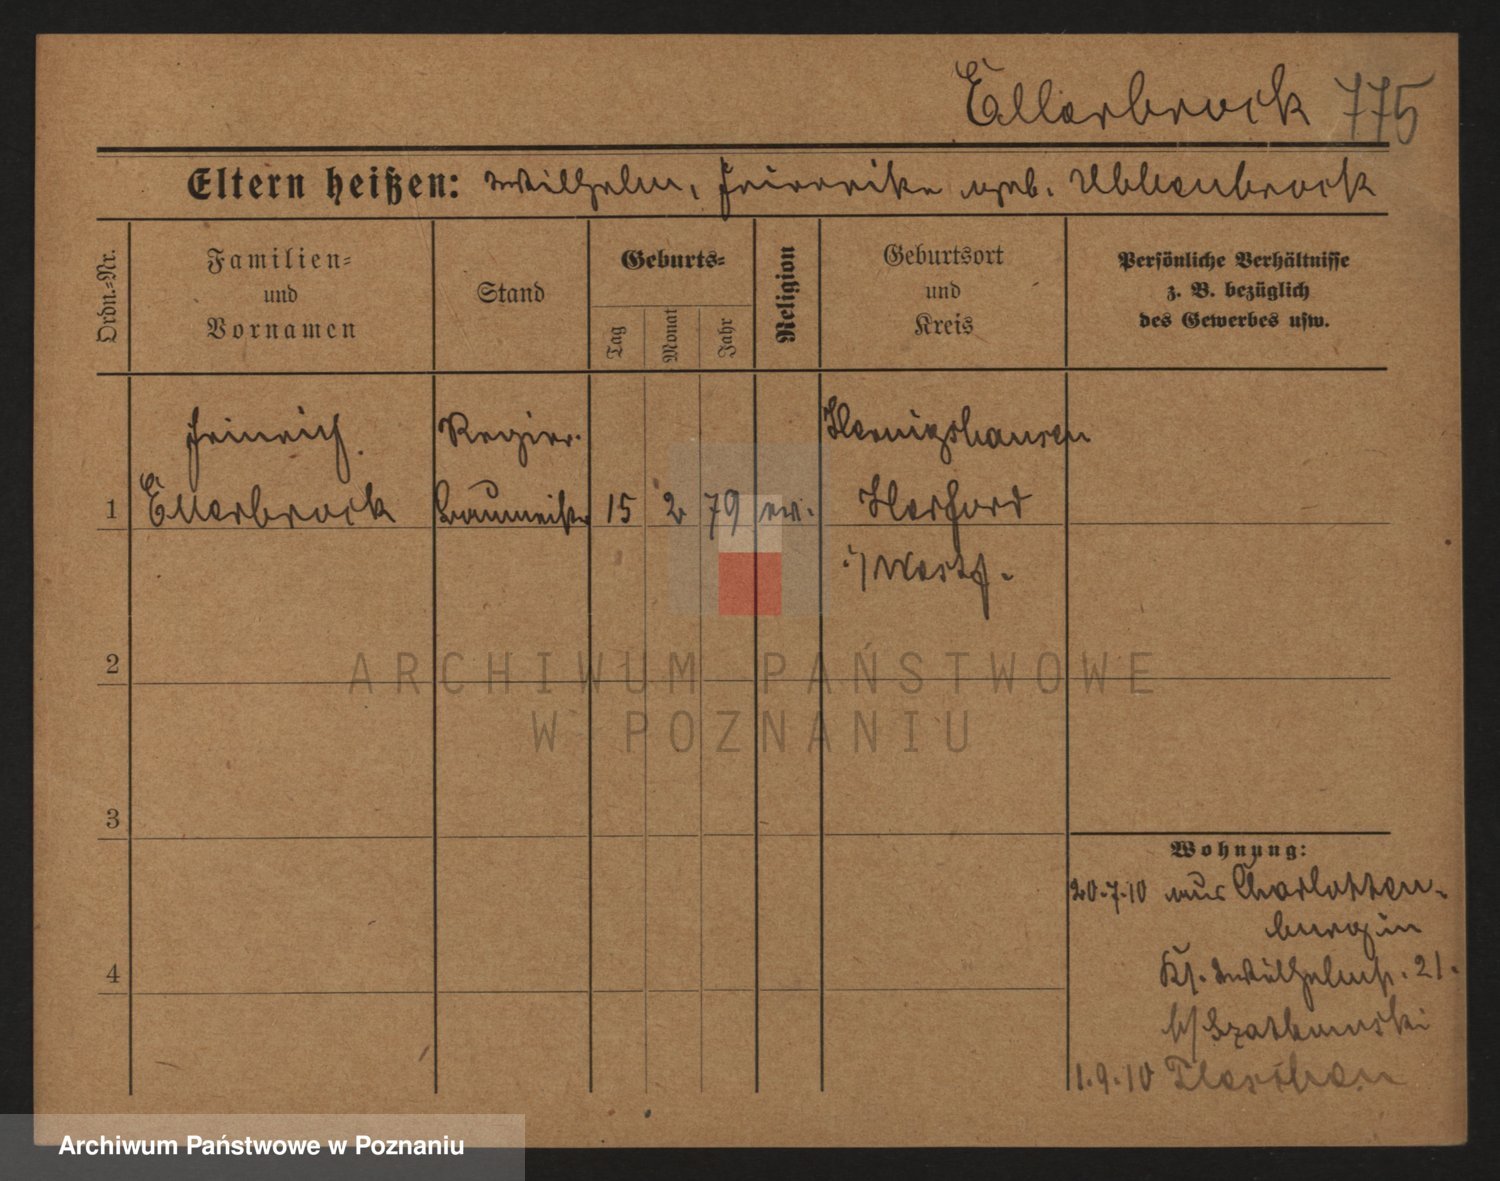 Ellerbrock 775
Eltern heißen: Wilhelm, Friederike geb. Ubbenbrock
Ordn.=Nr.
Familien=
und
Vornamen
Stand
Geburts=
Tag
Monat
Jahr
Religion
Geburtsort
und
Kreis
Persönliche Verhältnisse
z. B. bezüglich
des Gewerbes usw.
Heinrich
Ellerbrock
Regier.
Baumeister
1
15 2 79 ev.
Herford
i/Westf.
2
3
4
Wohnung:
20.7.10 aus Charlotten-
burg in
Wilhelmstr. 21.
b/
1.9.10
ARCHIWUM PAŃSTWOWE
W POZNANIU
Archiwum Państwowe w Poznaniu